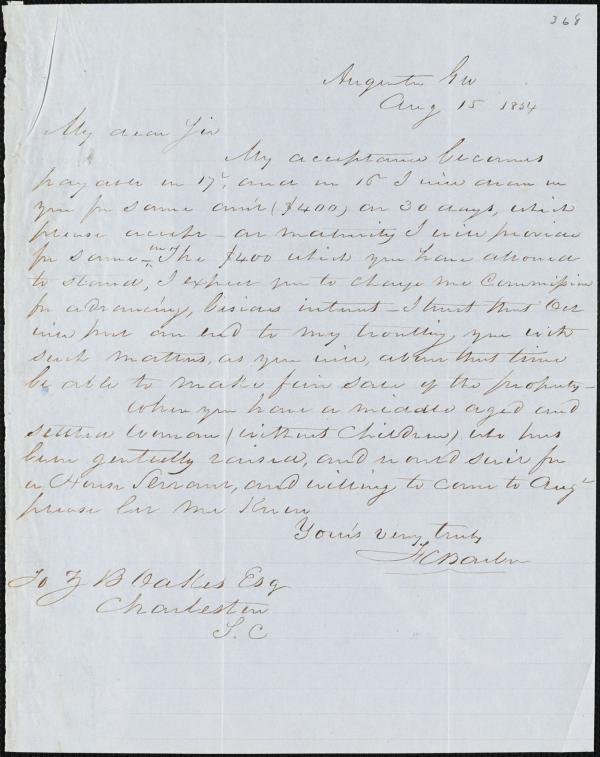 368
Augusta Geo
Aug 15 1854
My dear Sir
My acceptance becomes
payable on 17th, and on 16th I will draw on
you for same am't ($400) on 30 days, which
please accept - at maturity I will provide
for same - The $400 which you have allowed
to stand, I expect you to charge me Commission
for advancing, besides interest - I trust that Oct
will put an end to my troubling you with
such matters, as you will, about that time
be able to make fair sale of the property -
When you have a middle aged and
settled woman (without Children), who has
been genteelly raised, and would suit for
a House Servant, and willing to come to Augt
please let me know
Your's very truly
To Z B Oakes Esq
Charleston
S. C